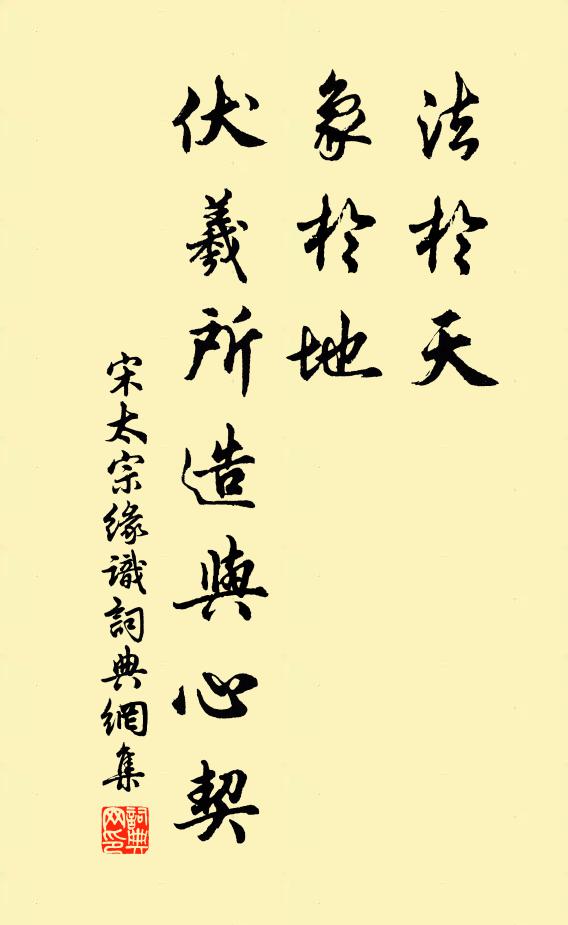 法於天
象於地
伏羲所造與心契
宋太宗緣識詞典網集
詞典网印